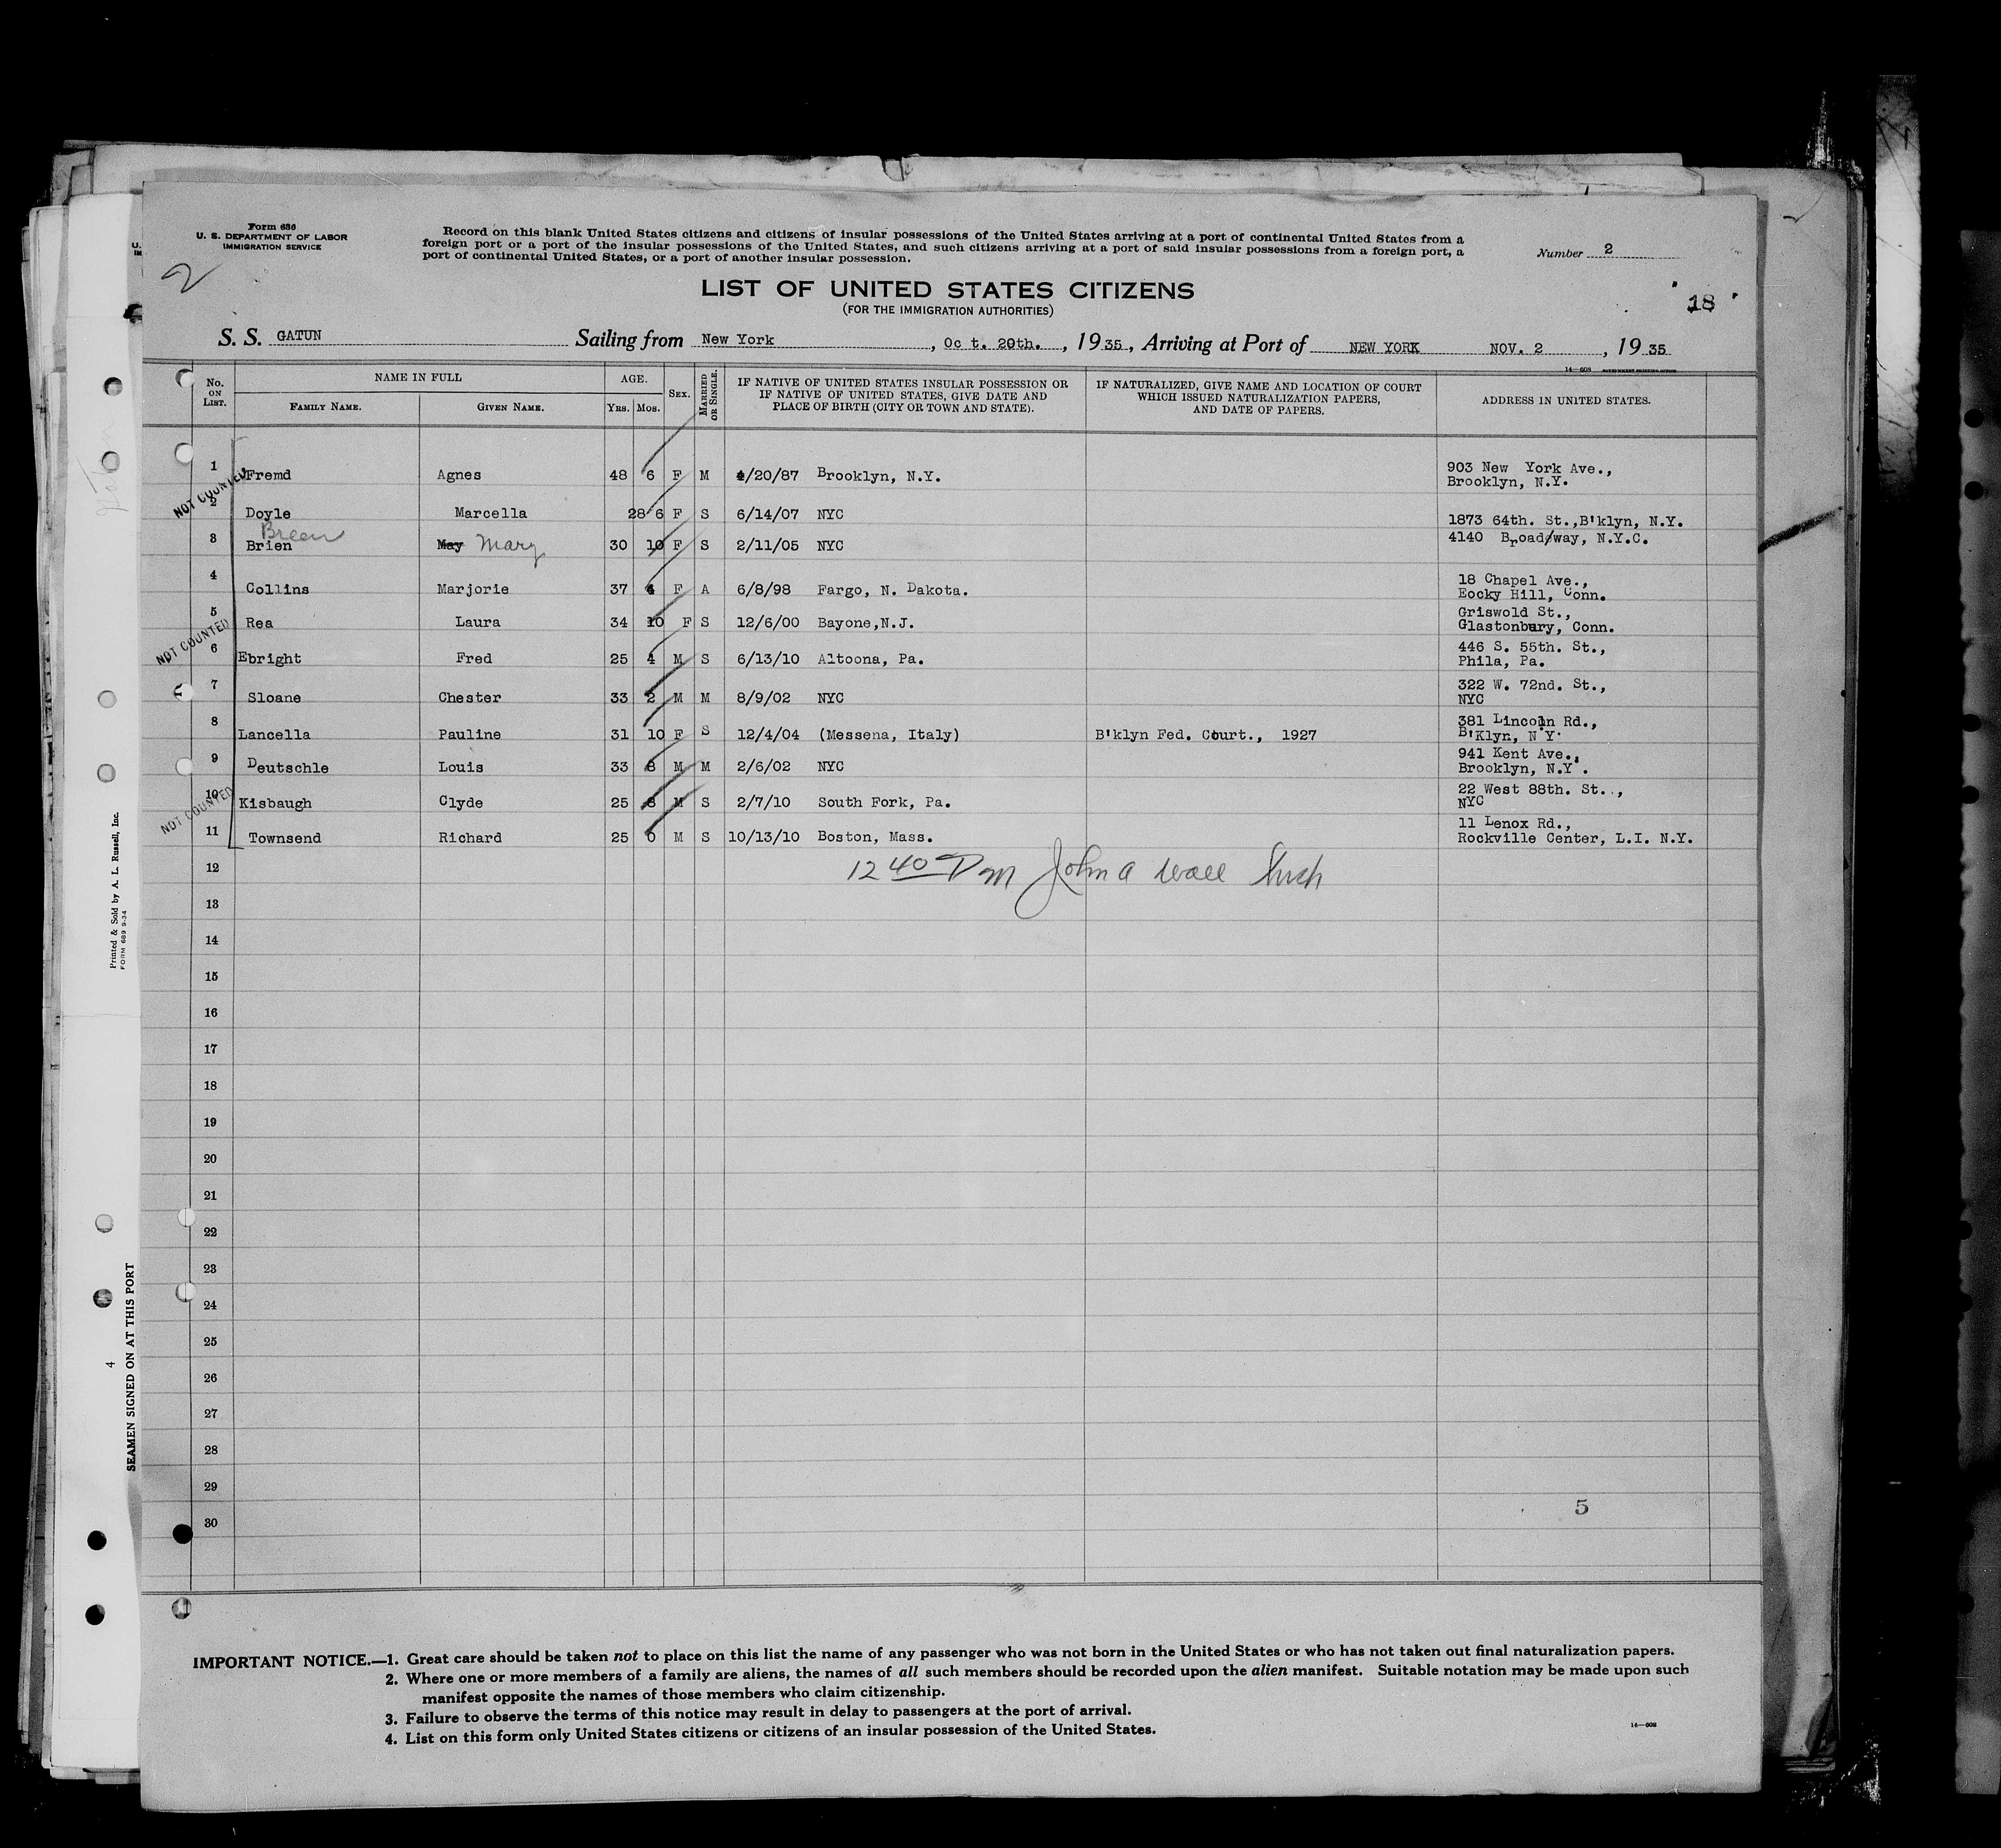 Form 630
U. S. DEPARTMENT OF LABOR
IMMIGRATION SERVICE
2
Record on this blank United States citizens and citizens of insular possessions of the United States arriving at a port of continental United States from a
foreign port or a port of the insular possessions of the United States, and such citizens arriving at a port of said insular possessions from a foreign port, a
port of continental United States, or a port of another insular possession.
Number 2
LIST OF UNITED STATES CITIZENS
(FOR THE IMMIGRATION AUTHORITIES)
18
S. S. GATUN Sailing from New York, Oc t. 20th., 1935, Arriving at Port of NEW YORK NOV. 2, 1935
14—608 GOVERNMENT PRINTING OFFICE
No. ON LIST. NAME IN FULL AGE. SEX. MARRIED OR SINGLE. IF NATIVE OF UNITED STATES INSULAR POSSESSION OR IF NATIVE OF UNITED STATES, GIVE DATE AND PLACE OF BIRTH (CITY OR TOWN AND STATE). IF NATURALIZED, GIVE NAME AND LOCATION OF COURT WHICH ISSUED NATURALIZATION PAPERS, AND DATE OF PAPERS. ADDRESS IN UNITED STATES.
FAMILY NAME. GIVEN NAME. YRS. MOS.
1 Fremd Agnes 48 6 F M 4/20/87 Brooklyn, N.Y. 903 New York Ave., Brooklyn, N.Y.
NOT COUNTED
2 Doyle Marcella 28 6 F S 6/14/07 NYC 1873 64th. St.,B'klyn, N.Y.
Breen
3 Brien May Mary 30 10 F S 2/11/05 NYC 4140 Broad/way, N.Y.C.
4 Collins Marjorie 37 4 F A 6/8/98 Fargo, N. Dakota. 18 Chapel Ave., Eocky Hill, Conn.
5 Rea Laura 34 10 F S 12/6/00 Bayone,N.J. Griswold St., Glastonbury, Conn.
NOT COUNTED
6 Ebright Fred 25 4 M S 6/13/10 Altoona, Pa. 446 S. 55th. St., Phila, Pa.
7 Sloane Chester 33 2 M M 8/9/02 NYC 322 W. 72nd. St., NYC
8 Lancella Pauline 31 10 F S 12/4/04 (Messena, Italy) B'klyn Fed. Court., 1927 381 Lincoln Rd., B'Klyn, N Y.
9 Deutschle Louis 33 8 M M 2/6/02 NYC 941 Kent Ave., Brooklyn, N.Y.
10 Kisbaugh Clyde 25 8 M S 2/7/10 South Fork, Pa. 22 West 88th. St., NYC
NOT COUNTED
11 Townsend Richard 25 0 M S 10/13/10 Boston, Mass. 11 Lenox Rd., Rockville Center, L.I. N.Y.
12 12 40 P m John A Wall
13
14
15
16
17
18
19
20
21
22
23
24
25
26
27
28
29
5
30
IMPORTANT NOTICE.—1. Great care should be taken not to place on this list the name of any passenger who was not born in the United States or who has not taken out final naturalization papers.
2. Where one or more members of a family are aliens, the names of all such members should be recorded upon the alien manifest. Suitable notation may be made upon such
manifest opposite the names of those members who claim citizenship.
3. Failure to observe the terms of this notice may result in delay to passengers at the port of arrival.
4. List on this form only United States citizens or citizens of an insular possession of the United States.
14—608
Printed & Sold by A. L. Russell, Inc.
FORM 689 9-34
4
SEAMEN SIGNED ON AT THIS PORT